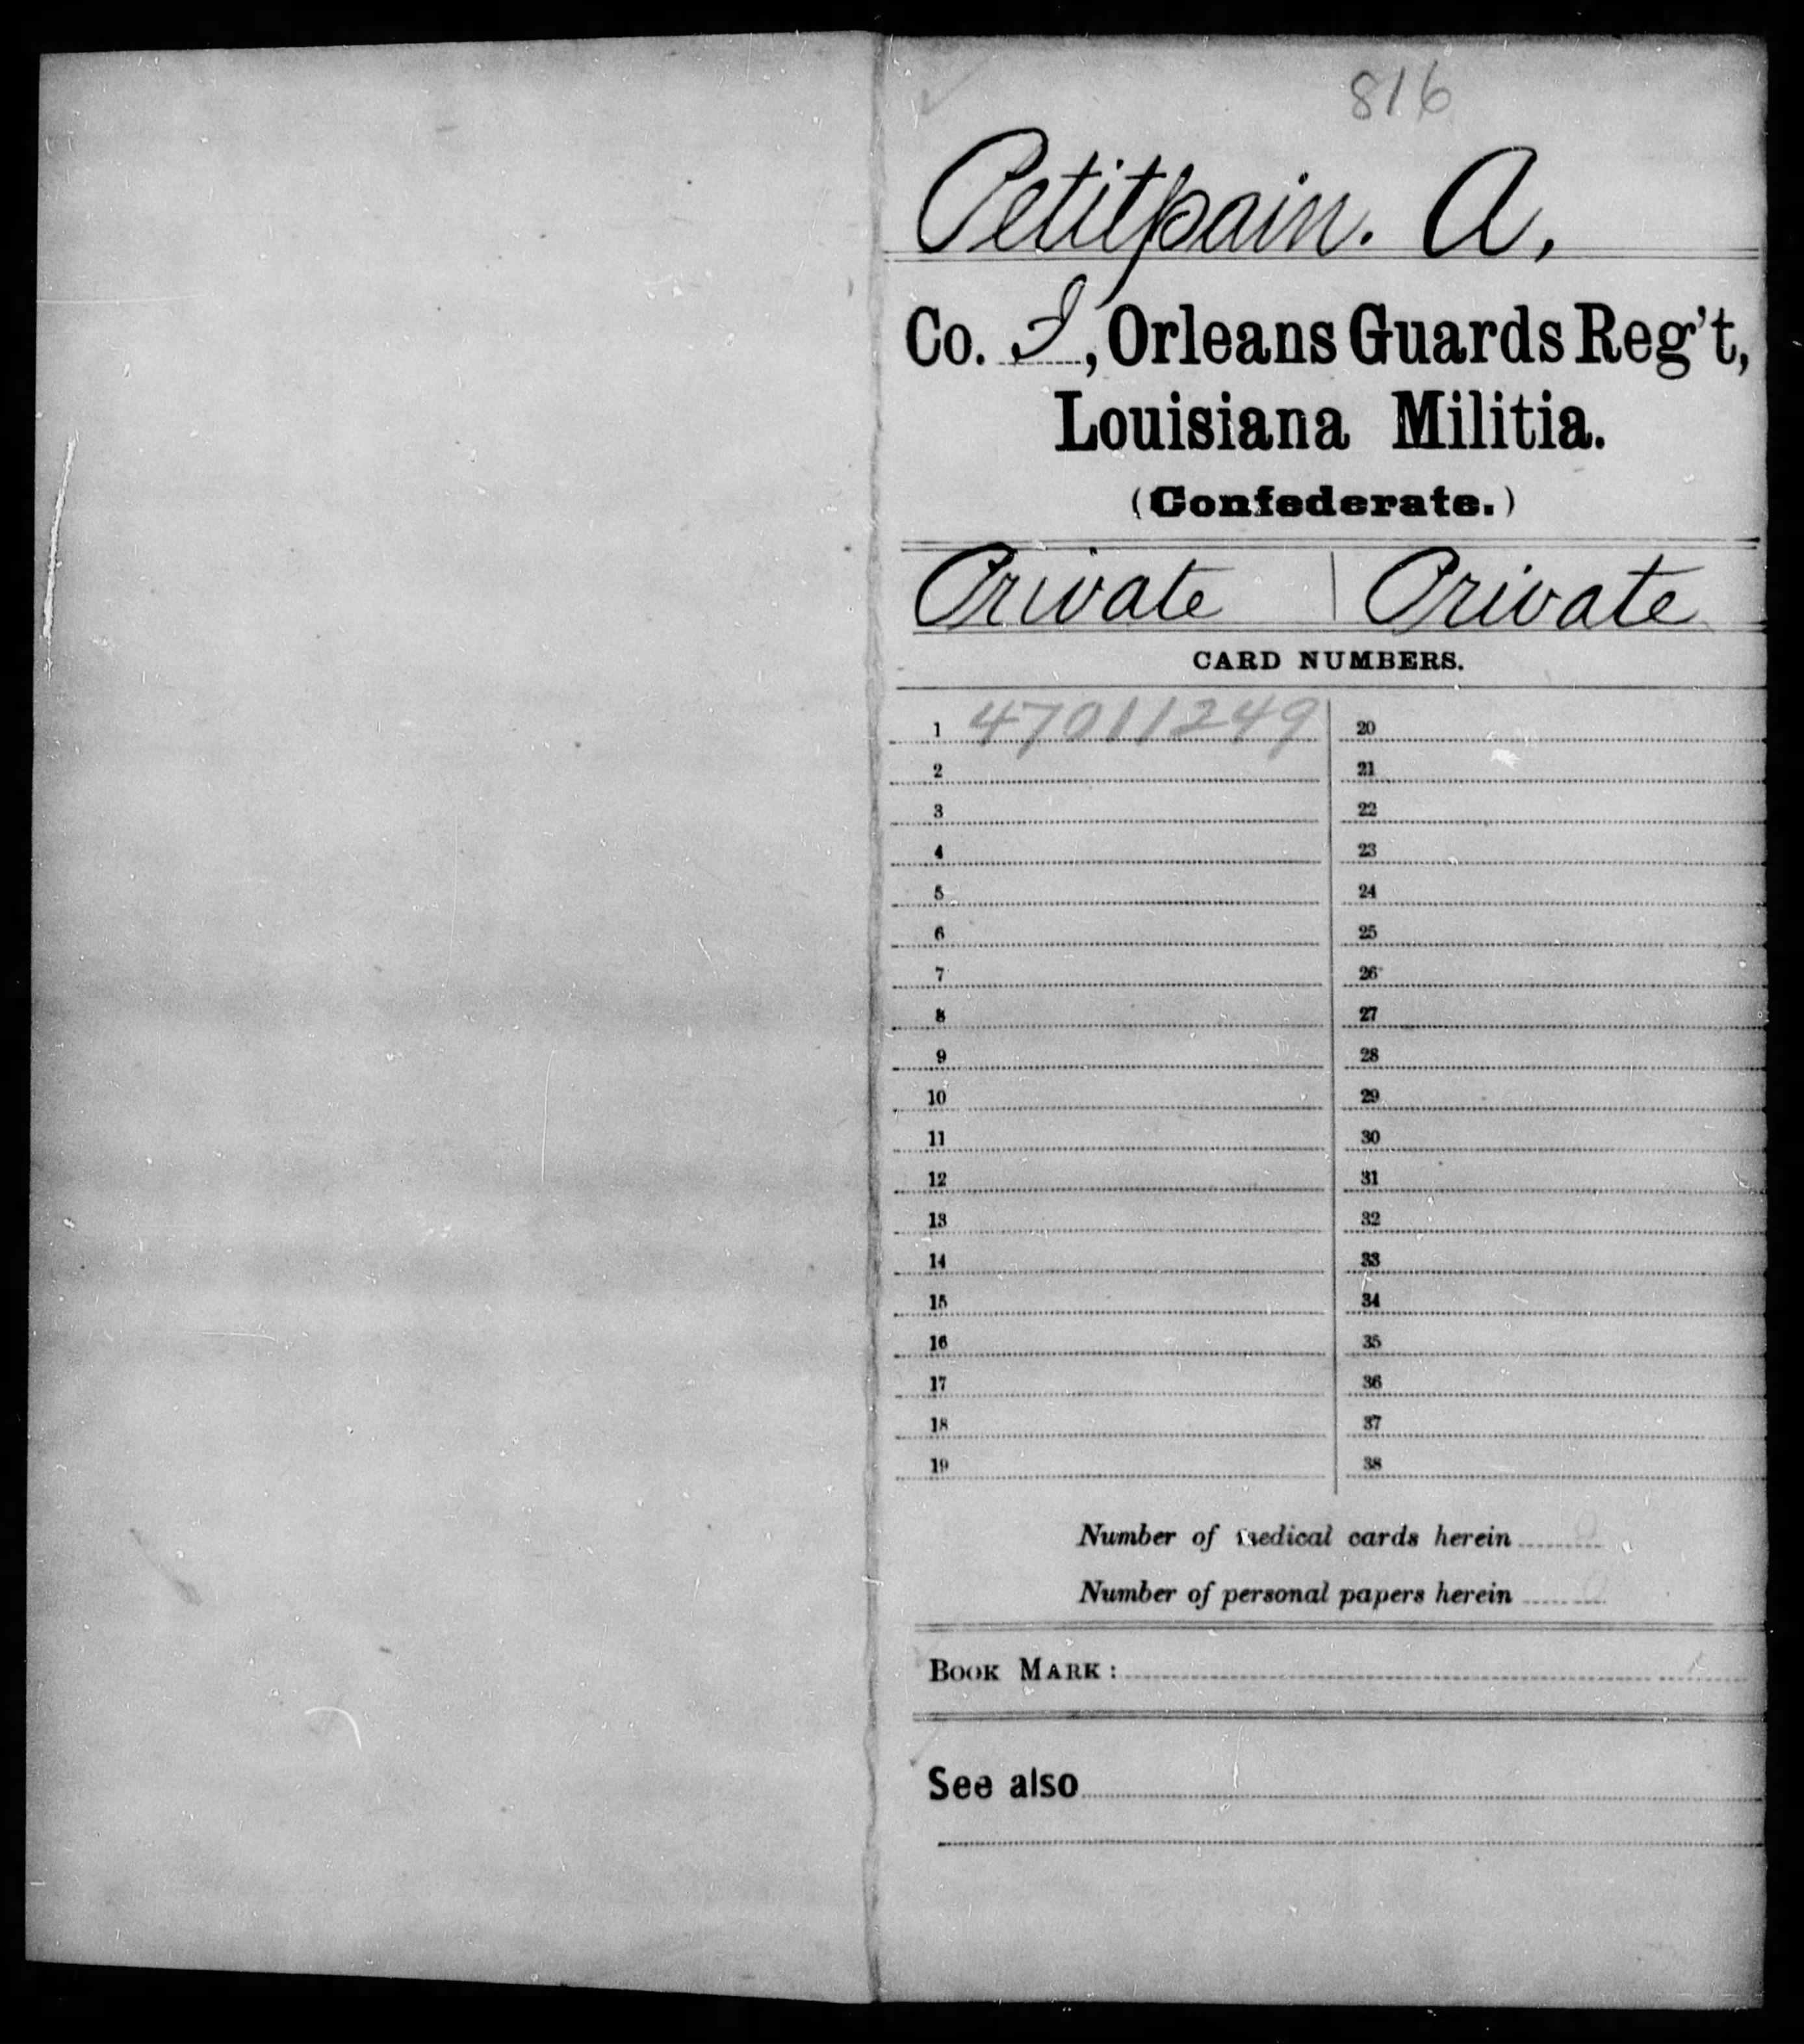 816
Petitpain. A,
Co. I, Orleans Guards Reg't,
Louisiana Militia.
(Confederate.)
Private | Private
CARD NUMBERS.
1 47011249 20
2 21
3 22
4 23
5 24
6 25
7 26
8 27
9 28
10 29
11 30
12 31
13 32
14 33
15 34
16 35
17 36
18 37
19 38
Number of medical cards herein 0
Number of personal papers herein 0
BOOK MARK:
See also